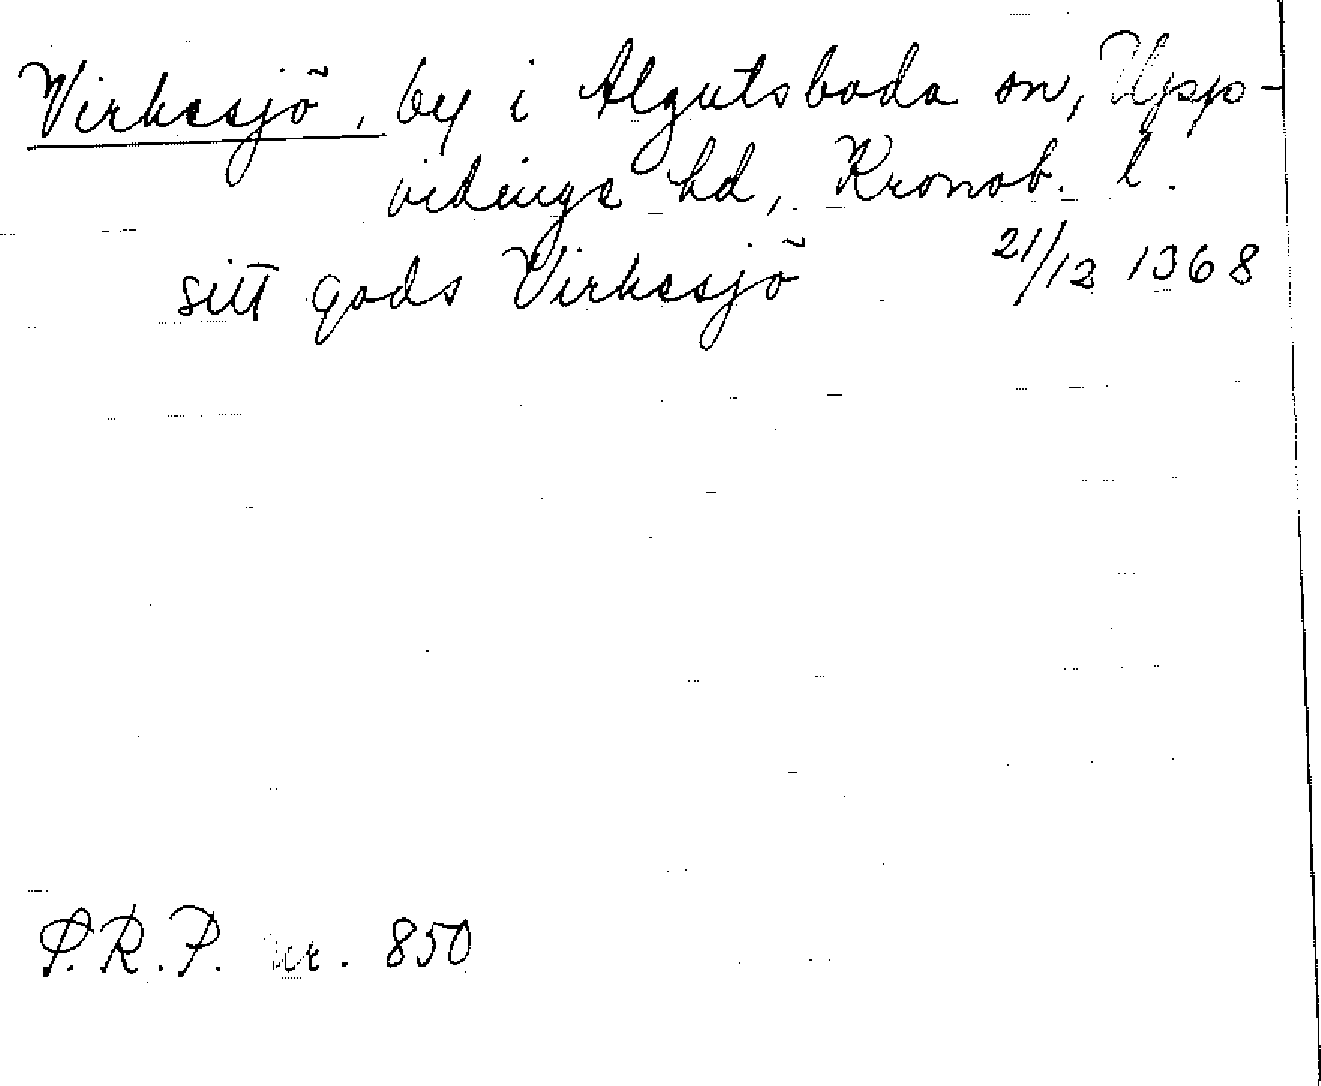 Virkesjö, by i Algutsboda sn, Upp-
vidinge hd, Kronob. l.
sitt gods Virkesjö 21/12 1368
S.R.P. nr. 850